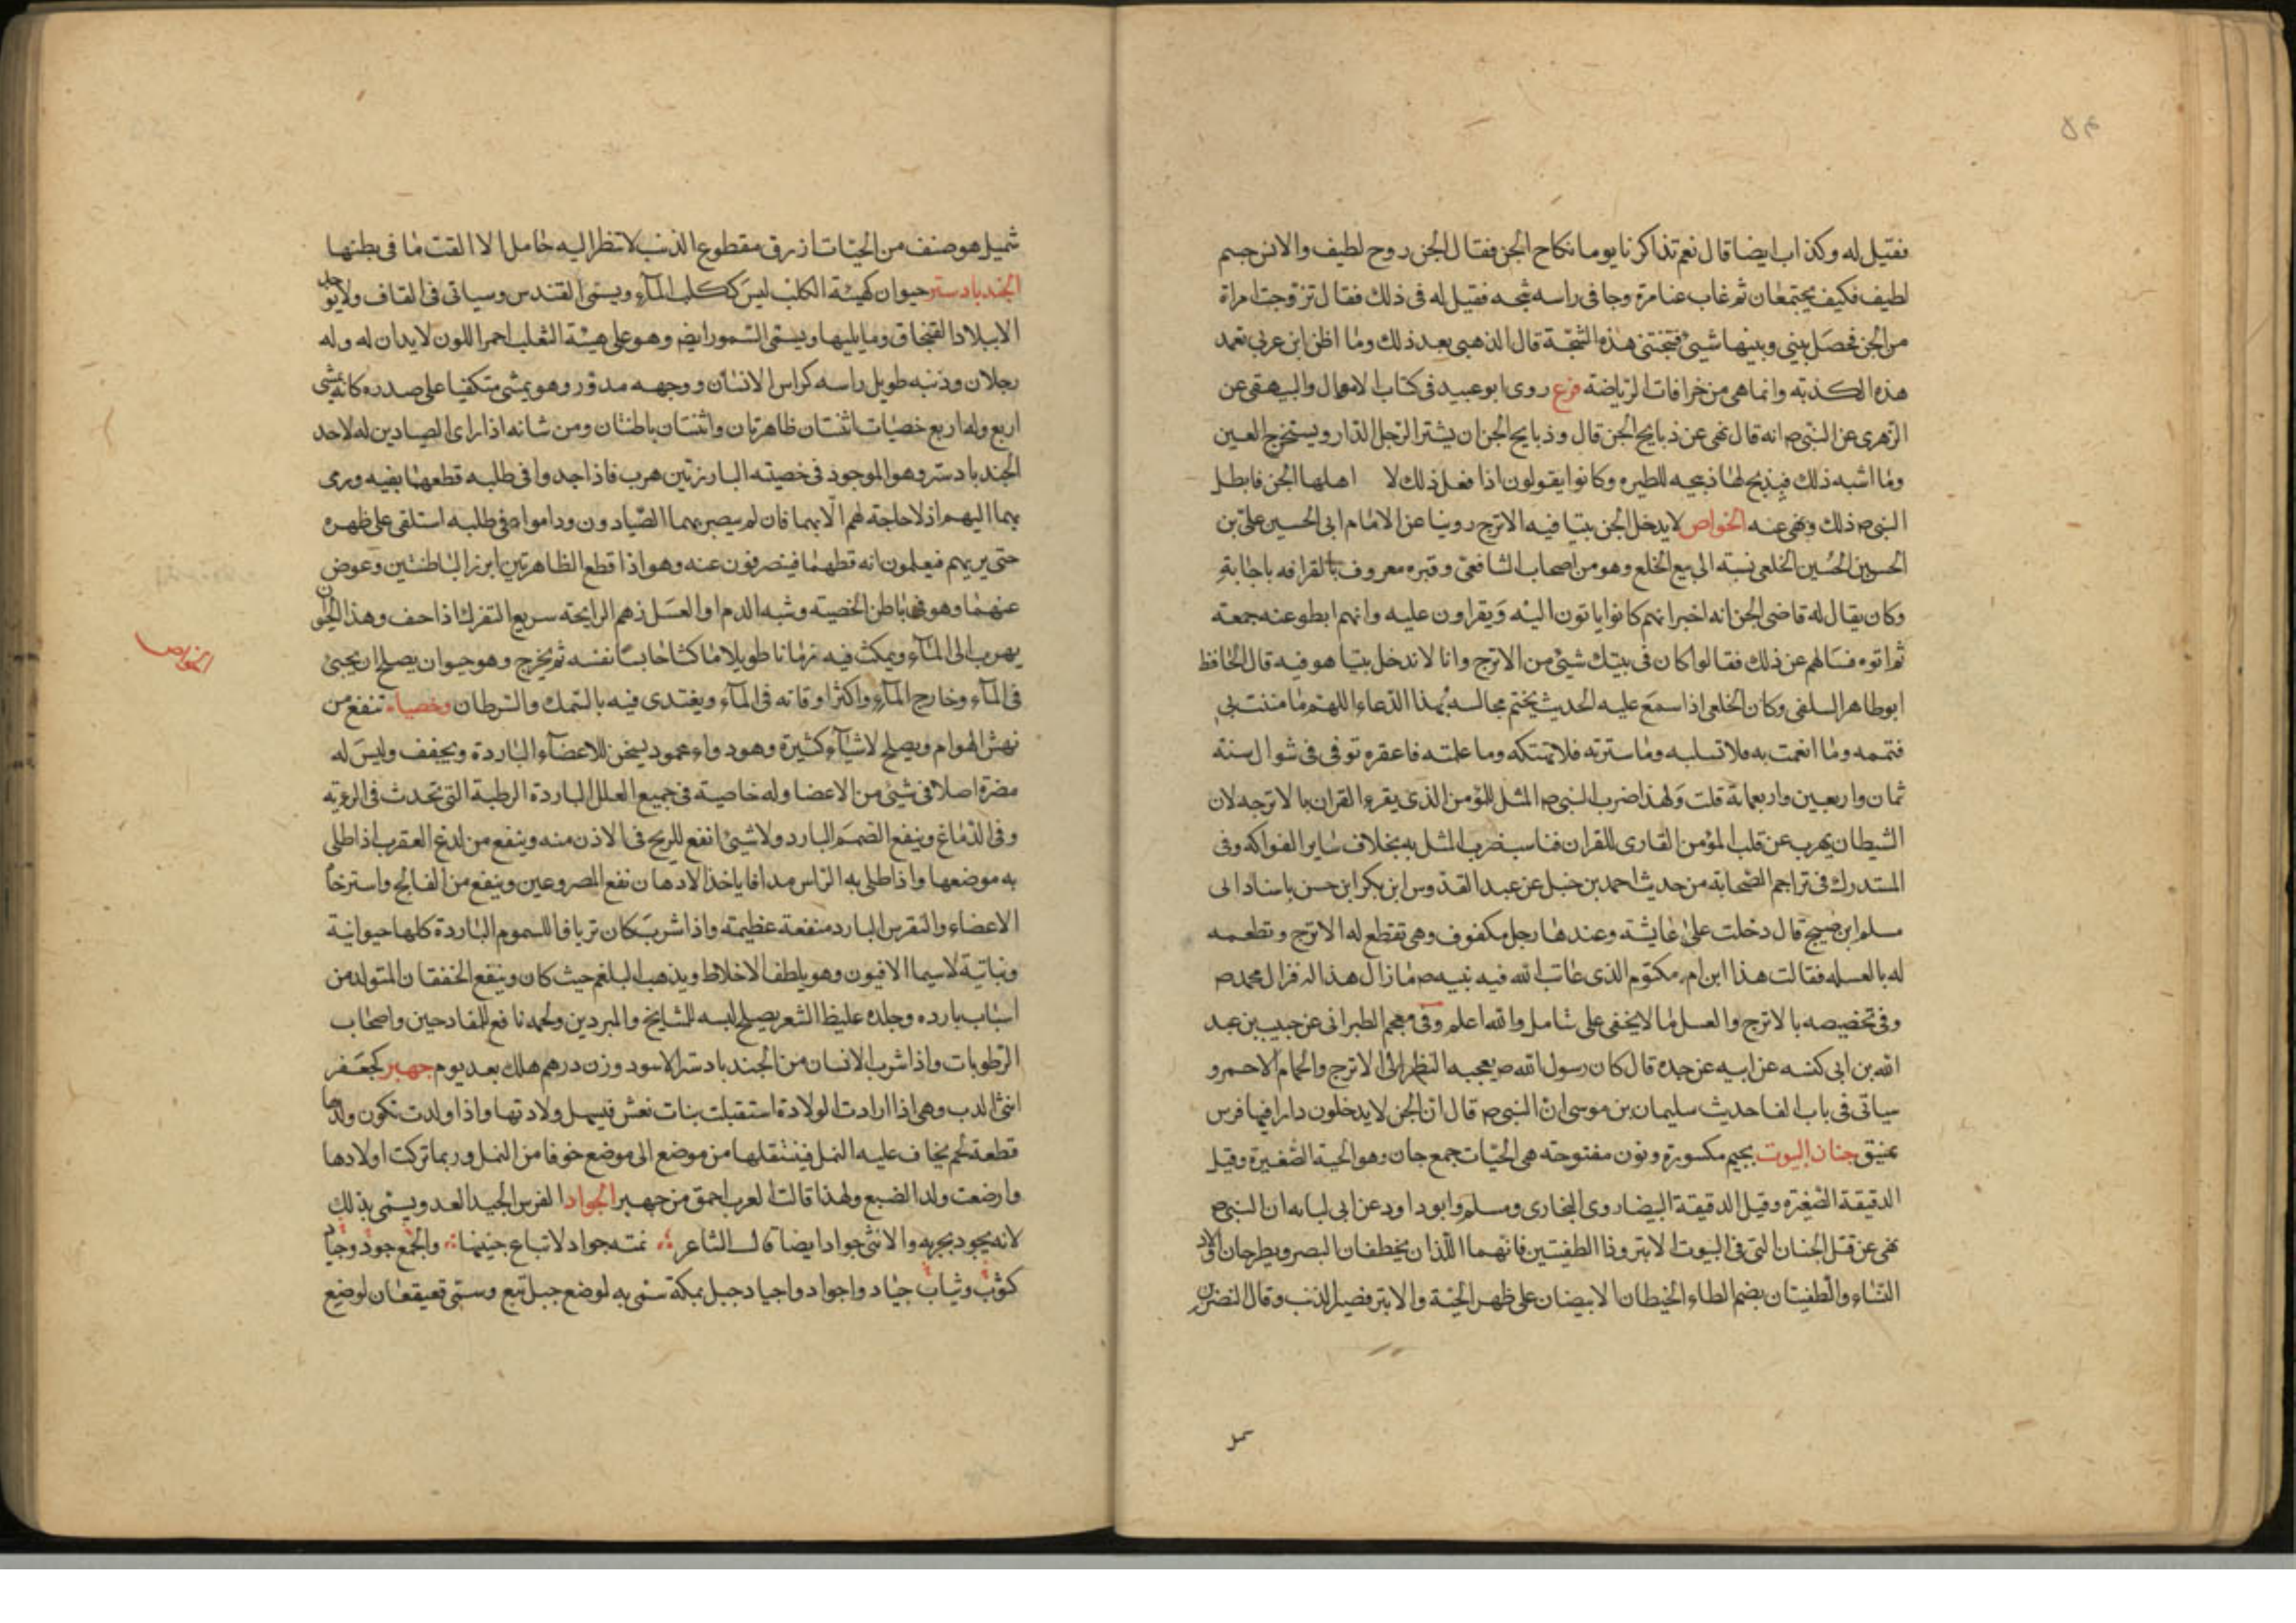 فقيل له وكذاب ايضا قال نعم تذاكرنا يوما نكاح الجن فقال الجن روح لطيف والانس جسم
لطيف فكيف يجتمعان ثم غاب عنا مرة وجا في راسه شجه فقيل له في ذلك فقال تزوجت امراة
من الجن فحصل بيني وبينها شيئ فشجتني هذه الشجة قال الذهبي بعد ذلك وما اظن ابن عربي تعمد
هذه الكذبة وانما هي من خرافات الرياضة فرع روى ابو عبيد في كتاب الاموال والبيهقي عن
الزهري عن النبي ص انه قال نهى عن ذبايح الجن قال وذبايح الجن ان يشتر الرجل الدار ويستخرج العين
وما اشبه ذلك فيذبح لها ذبيحه للطيره وكانوا يقولون اذا فعل ذلك لا اهلها الجن فابطل
النبي ص ذلك ونهى عنه الخواص لا يدخل الجن بيتا فيه الاترج روينا عن الامام ابي الحسين علي بن
الحسين الخلعي نسبة الى بيع الخلع وهو من اصحاب الشافعي وقبره معروف بالقرافه باجابة
وكان يقال له قاضي الجن انه اخبر انهم كانوا ياتون اليه ويقراون عليه وانهم ابطو عنه جمعة
ثم اتوه فسالهم عن ذلك فقالوا كان في بيتك شيئ من الاترج وانا لا ندخل بيتا هو فيه قال الحافظ
ابو طاهر السلفي وكان الخلعي اذا سمع عليه الحديث يختم مجالسه بهذا الدعاء اللهم ما مننت بي
فتممه وما انعمت به فلا تسلبه وما سترته فلا تهتكه وما علمته فاغفره توفي في شوال سنة
ثمان واربعين واربعمائة قلت ولهذا ضرب النبي ص المثل للمؤمن الذي يقرء القران بالاترجه لان
الشيطان يهرب عن قلب المؤمن القارى للقران فناسب ضرب المثل به بخلاف ساير الفواكه وفي
المستدرك في تراجم الصحابة من حديث احمد بن حنبل عن عبد القدوس ابن بكر ابن حسن باسناد الى
مسلم ابن صبيح قال دخلت على عايشة وعندها رجل مكفوف وهي تقطع له الاترج وتطعمه
له بالعسل فقالت هذا ابن ام مكتوم الذي عاتب الله فيه نبيه ص ما زال هذا له من ال محمد ص
وفي تخصيصه بالاترج والعسل ما لا يخفى على متامل والله اعلم وفي معجم الطبراني عن حبيب بن عبد
الله بن ابي كبشه عن ابيه عن جده قال كان رسول الله ص يعجبه النظر الى الاترج والحمام الاحمر و
سياتي في باب الفا حديث سليمان بن موسى ان النبي ص قال ان الجن لا يدخلون دارا فيها فرس
عتيق جنان البيوت بجيم مكسورة ونون مفتوحته هي الحيات جمع جان وهو الحية الصغيرة وقيل
الدقيقة الصغيرة وقيل الدقيقة البيضا روى البخارى ومسلم وابو داود عن ابي لبابه ان النبي ص
نهى عن قتل الجنان التي في البيوت الا الابتر وذا الطفيتين فانهما اللذان يخطفان البصر ويطرحان اولاد
النساء والطفيتان بضم الطاء الخيطان الابيضان على ظهر الحية والابتر قصير الذنب وقال النضر بن
شميل
شميل هو صنف من الحيات ازرق مقطوع الذنب لا تنظر اليه حامل الا القت ما في بطنها
الجند بادستر حيوان كهيئة الكلب ليس ككلب الماء ويسمى القندس وسياتي في القاف ولا يوجد
الا ببلاد القبجاق وما يليها ويسمى السمور ايضا وهو على هيئة الثعلب احمر اللون لا يدان له وله
رجلان وذنبه طويل راسه كراس الانسان ووجهه مدور وهو يمشي متكفيا على صدره كانه يمشي
اربع وله اربع خصيات اثنتان ظاهرتان واثنتان باطنتان ومن شانه اذا راى الصيادين له لاخد
الجند بادستر وهو الموجود في خصيته البارزتين هرب فاذا جدوا في طلبه قطعهما بفيه ورمى
بهما اليهم اذ لا حاجة لهم الا بهما فان لم يبصر بهما الصيادون وداموا في طلبه استلقى على ظهره
حتى يريهم فيعلمون انه قطهما فينصرفون عنه وهو اذا قطع الظاهرتين ابرز الباطنتين وعوض
عنهما وهو في باطن الخصيته وشبه الدم او العسل زهم الرايحته سريع التفرك اذا جف وهذا الحيوان
يهرب الى الماء ويمكث فيه زمانا طويلا ماكثا حابسا نفسه ثم يخرج وهو حيوان يصلح ان يحيى
في الماء وخارج الماء واكثر اوقاته في الماء ويغتدى فيه بالسمك والسرطان وخصياه تنفع من
نهش الهوام ويصلح لاشياء كثيرة وهو دواء محمود يسخن الاعضاء الباردة ويجفف وليس له
مضرة اصلا في شيئ من الاعضا وله خاصية في جميع العلل الباردة الرطبة التي تحدث في الرءته
وفي الدماغ وينفع الصمم البارد ولا شيئ انفع للريح في الاذن منه وينفع من لدغ العقرب اذا طلى
به موضعها واذا طلى به الراس مدافا ياخذ الادهان نفع المصروعين وينفع من الفالج واسترخا
الاعضاء والنقرس البارد منفعة عظيمته واذا شرب كان ترياقا للسموم الباردة كلها حيوانية
ونباتية لا سيما الافيون وهو يلطف الاخلاط ويذهب البلغم حيث كان وينفع الخفقان المتولد من
اسباب بارده وجلده غليظ الشعر يصلح لبسه للمشايخ والمبردين ولحمه نافع للمفلوجين واصحاب
الرطوبات واذا شرب الانسان من الجند بادستر الاسود وزن درهم هلك بعد يوم جهبر كجعفر
انثى الدب وهي اذا ارادت الولادة استقبلت بنات نعش فيسهل ولادتها واذا ولدت تكون ولدها
قطعة لحم يخاف عليه النمل فينتقلها من موضع الى موضع خوفا من النمل وربما تركت اولادها
وارضعت ولد الضبع ولهذا قالت العرب احمق من جهبر الجواد الفرس الجيد العدو ويسمى بذلك
لانه يجود بجريه والانثى جواد ايضا قال الشاعر نمته جواد لا تباع جنينها والجمع جود وجياد
كثوب وثياب جياد واجواد واجياد جبل بمكة سمى به لوضع جبل تبع وسمى قعيقعان لوضع
الخواص